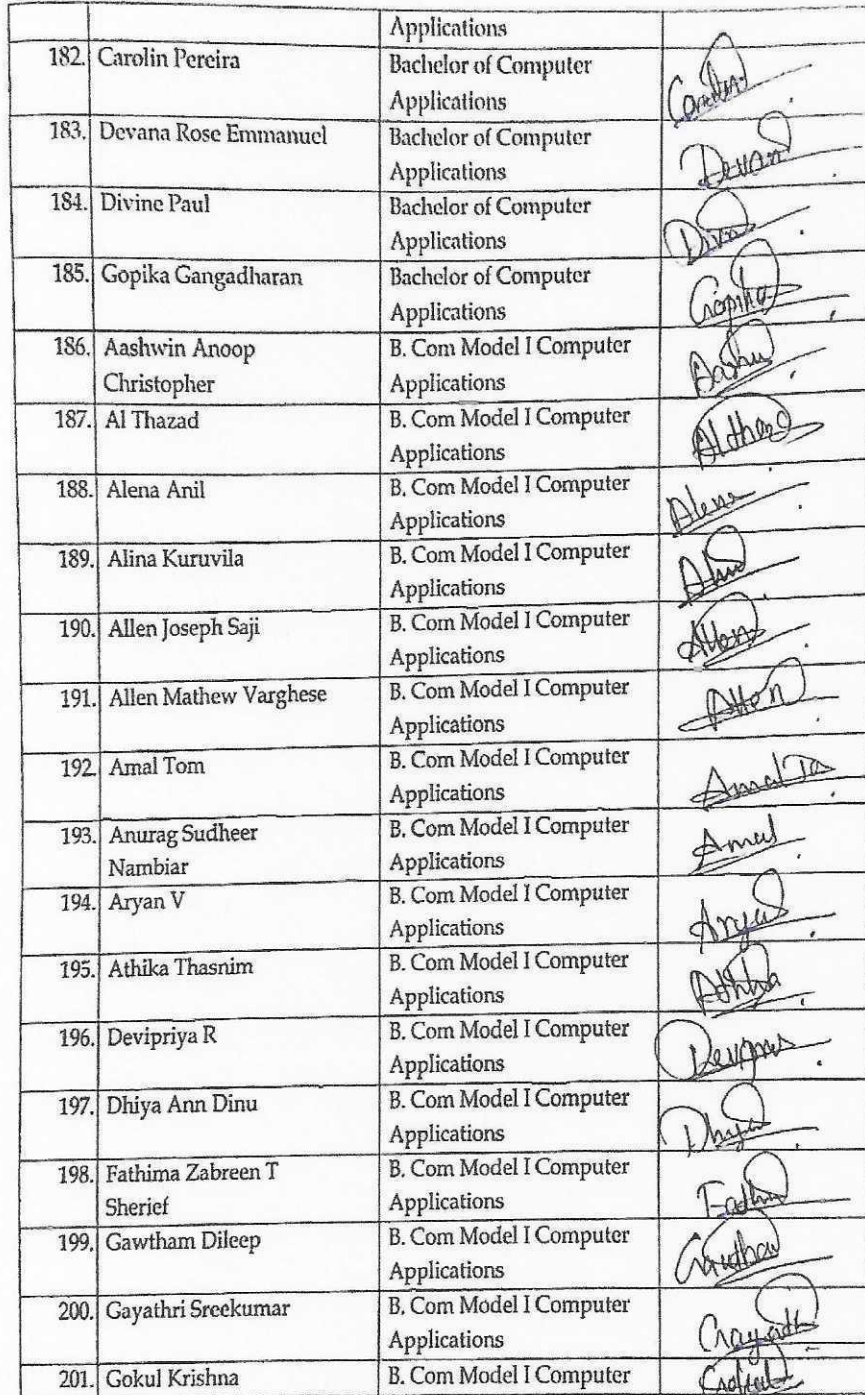 Applications
182. Carolin Pereira Bachelor of Computer
Applications Carolin
183. Devana Rose Emmanuel Bachelor of Computer
Applications Devan
184. Divine Paul Bachelor of Computer
Applications Divn
185. Gopika Gangadharan Bachelor of Computer
Applications Gopika
186. Aashwin Anoop B. Com Model I Computer
Christopher Applications
187. Al Thazad B. Com Model I Computer
Applications
188. Alena Anil B. Com Model I Computer
Applications Alena
189. Alina Kuruvila B. Com Model I Computer
Applications
190. Allen Joseph Saji B. Com Model I Computer
Applications Allen
191. Allen Mathew Varghese B. Com Model I Computer
Applications Allen
192. Amal Tom B. Com Model I Computer
Applications Amal To
193. Anurag Sudheer B. Com Model I Computer
Nambiar Applications Amal
194. Aryan V B. Com Model I Computer
Applications
195. Athika Thasnim B. Com Model I Computer
Applications
196. Devipriya R B. Com Model I Computer
Applications
197. Dhiya Ann Dinu B. Com Model I Computer
Applications Dhiya
198. Fathima Zabreen T B. Com Model I Computer
Sherief Applications
199. Gawtham Dileep B. Com Model I Computer
Applications
200. Gayathri Sreekumar B. Com Model I Computer
Applications
201. Gokul Krishna B. Com Model I Computer